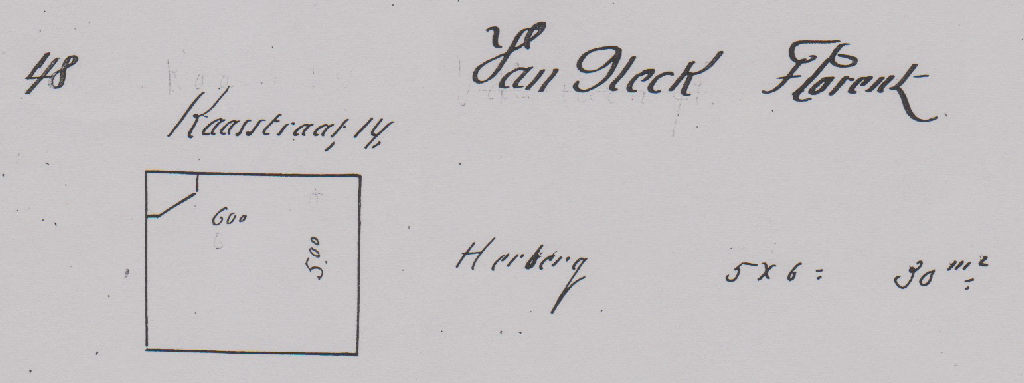 48 Van Steck Florent
Kaasstraat, 14,
6 00
5.00
Herberg 5 x 6 = 30 m²